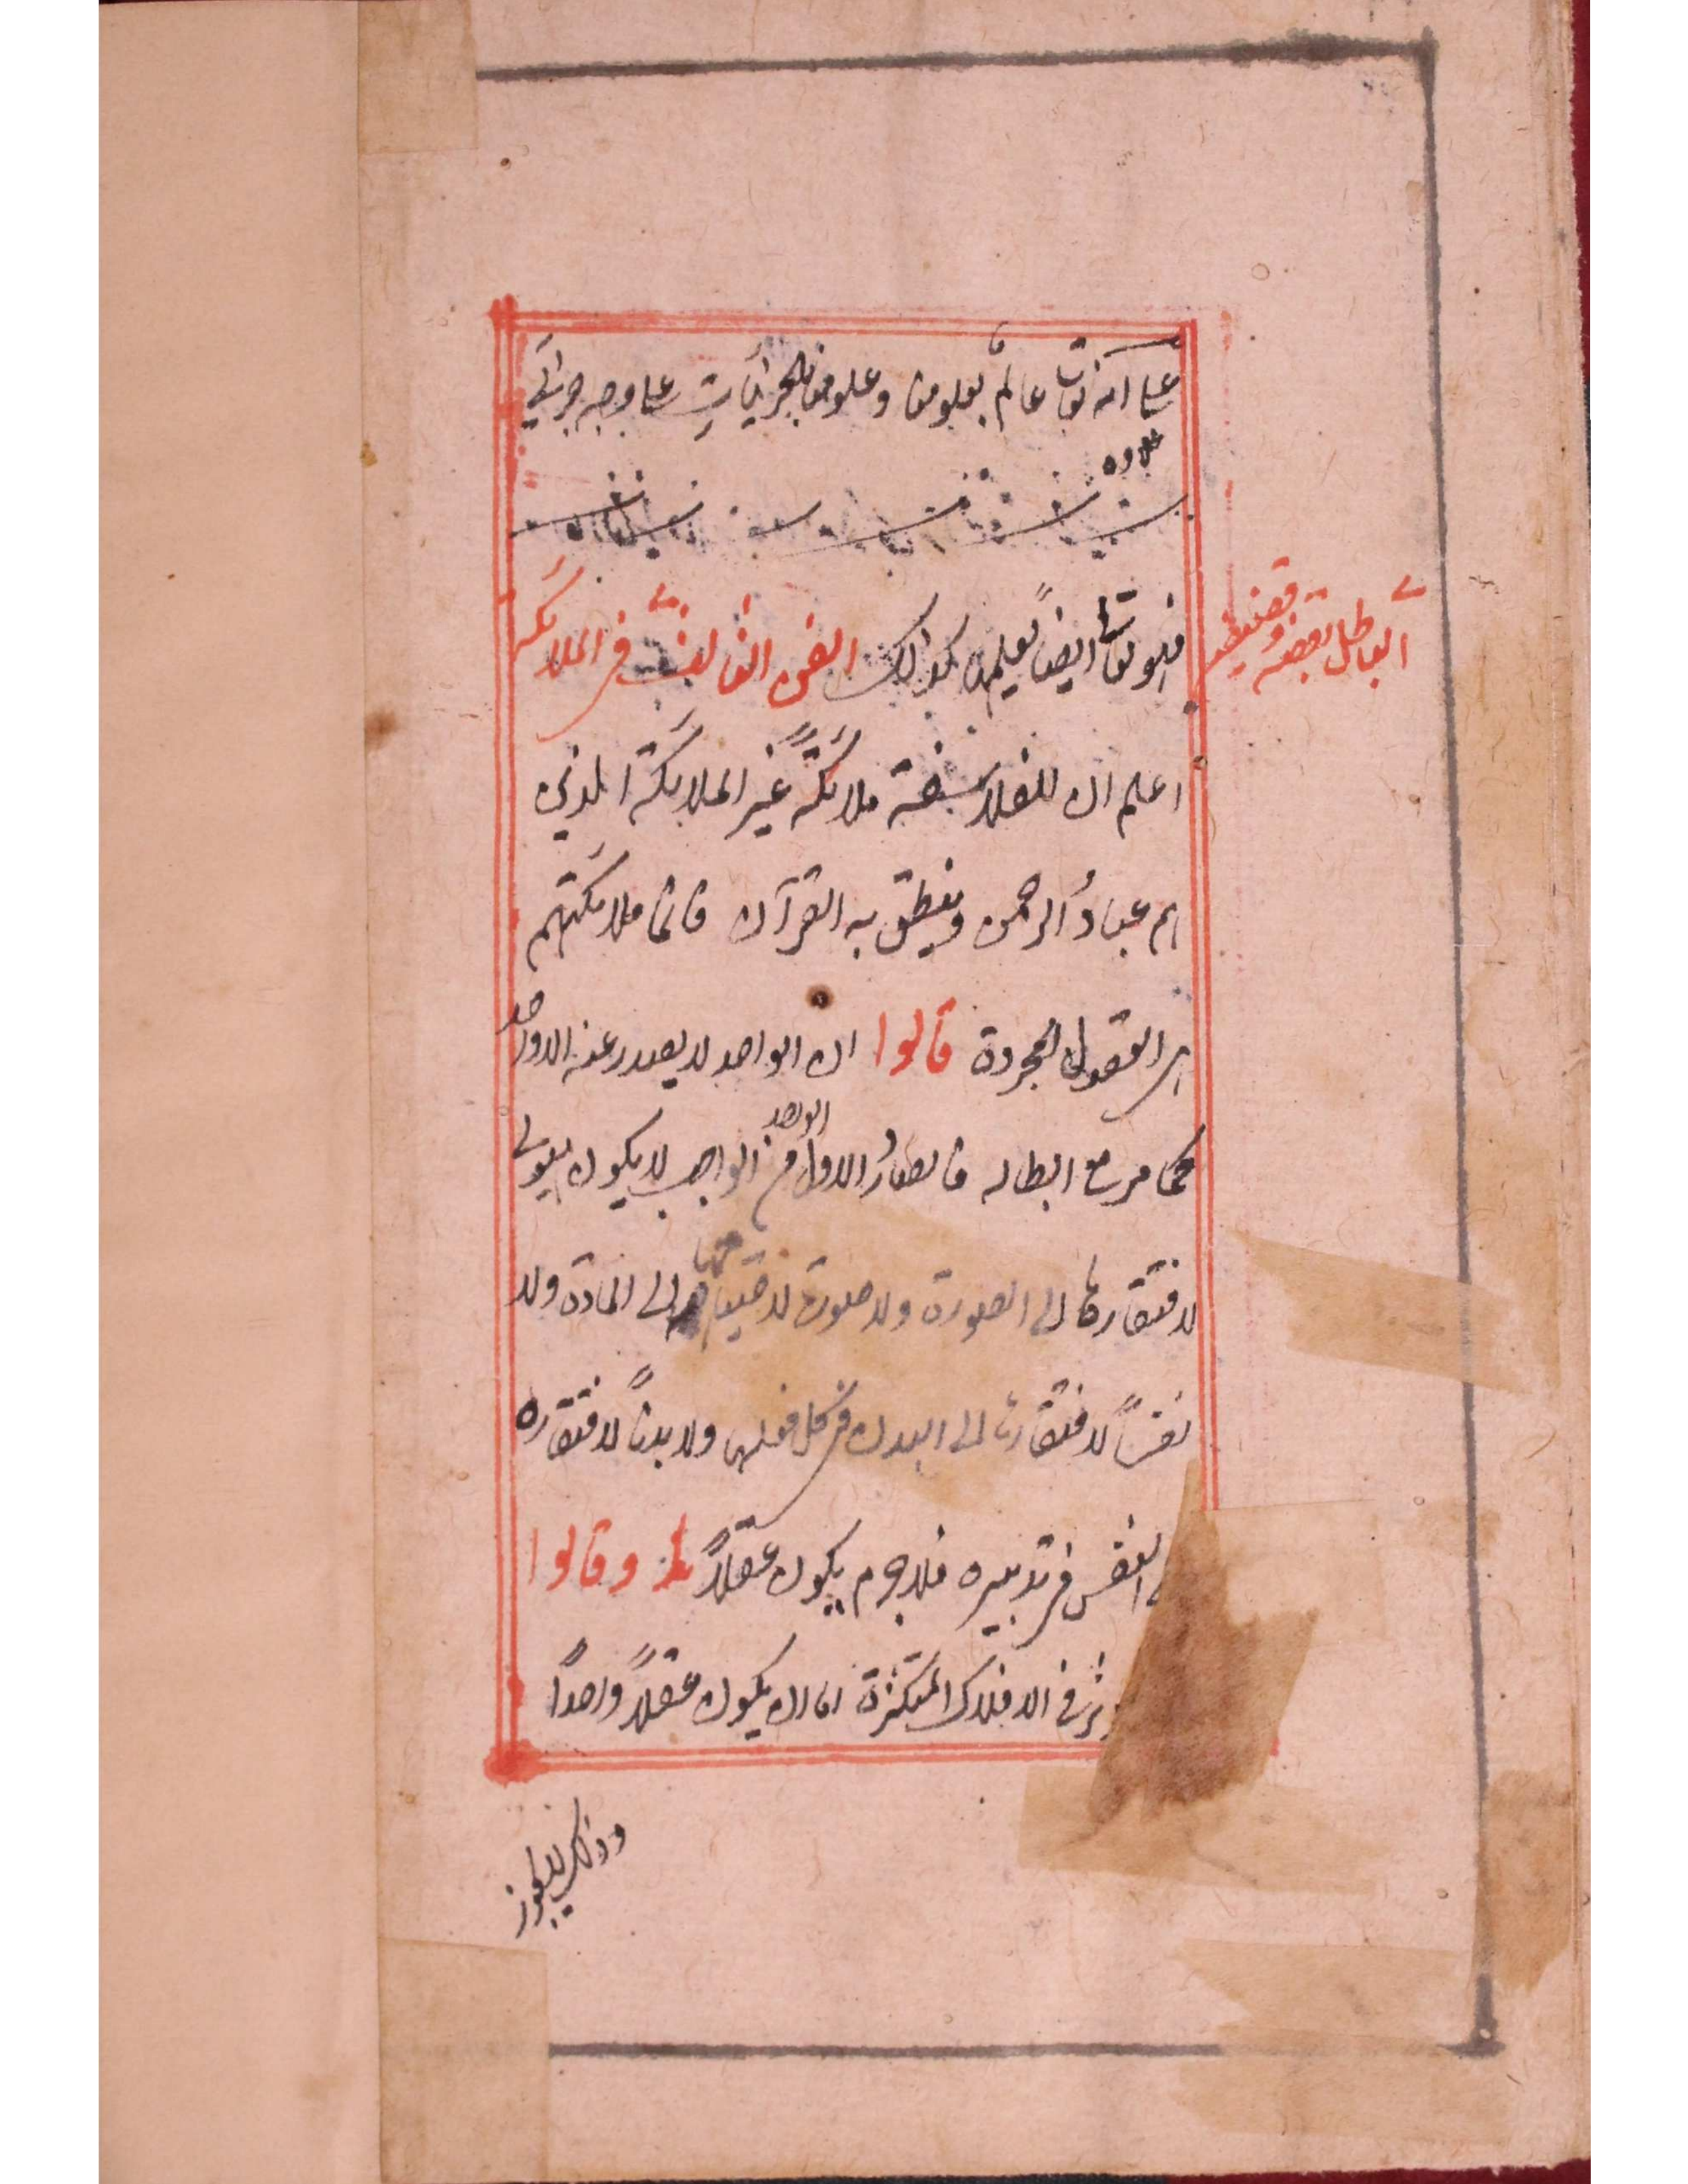 على انه تعالى عالم بعلومنا وعلومنا بالجزئيات على وجه جزئي
فهو تعالى ايضًا يعلمها كذلك الفن الثالث في الملائكة
اعلم ان للفلاسفة ملائكةً غير الملائكة الذين
هم عبادُ الرحمن وينطق به القرآن فانما ملائكتهم
هي العقول المجردة قالوا ان الواحد لا يصدر عنه الا الواحد
كما مر مع ابطاله فالصادر الاول من الواحد الواجب لا يكون هيولى
لافتقارها الى الصورة ولا صورة لاحتياجها الى المادة ولا
نفسًا لافتقارها الى البدن في كل فعلها ولا بدنًا لافتقاره
النفس في تدبيره فلا جرم يكون عقلًا وقالوا
في الافلاك المتكثرة اما ان يكون عقلًا واحدًا
وذلك لا يجوز